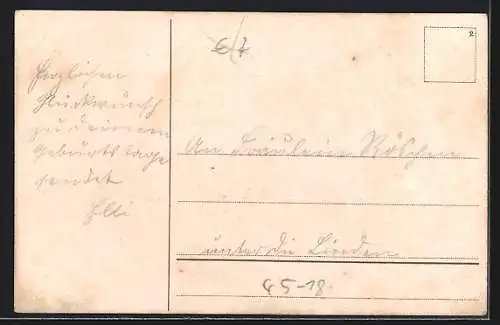 Herzlichen
Glückwunsch
zu deinem
Geburtstage
sendet
Elli
2
An Fräulein Röschen
unter die Linden
45-18